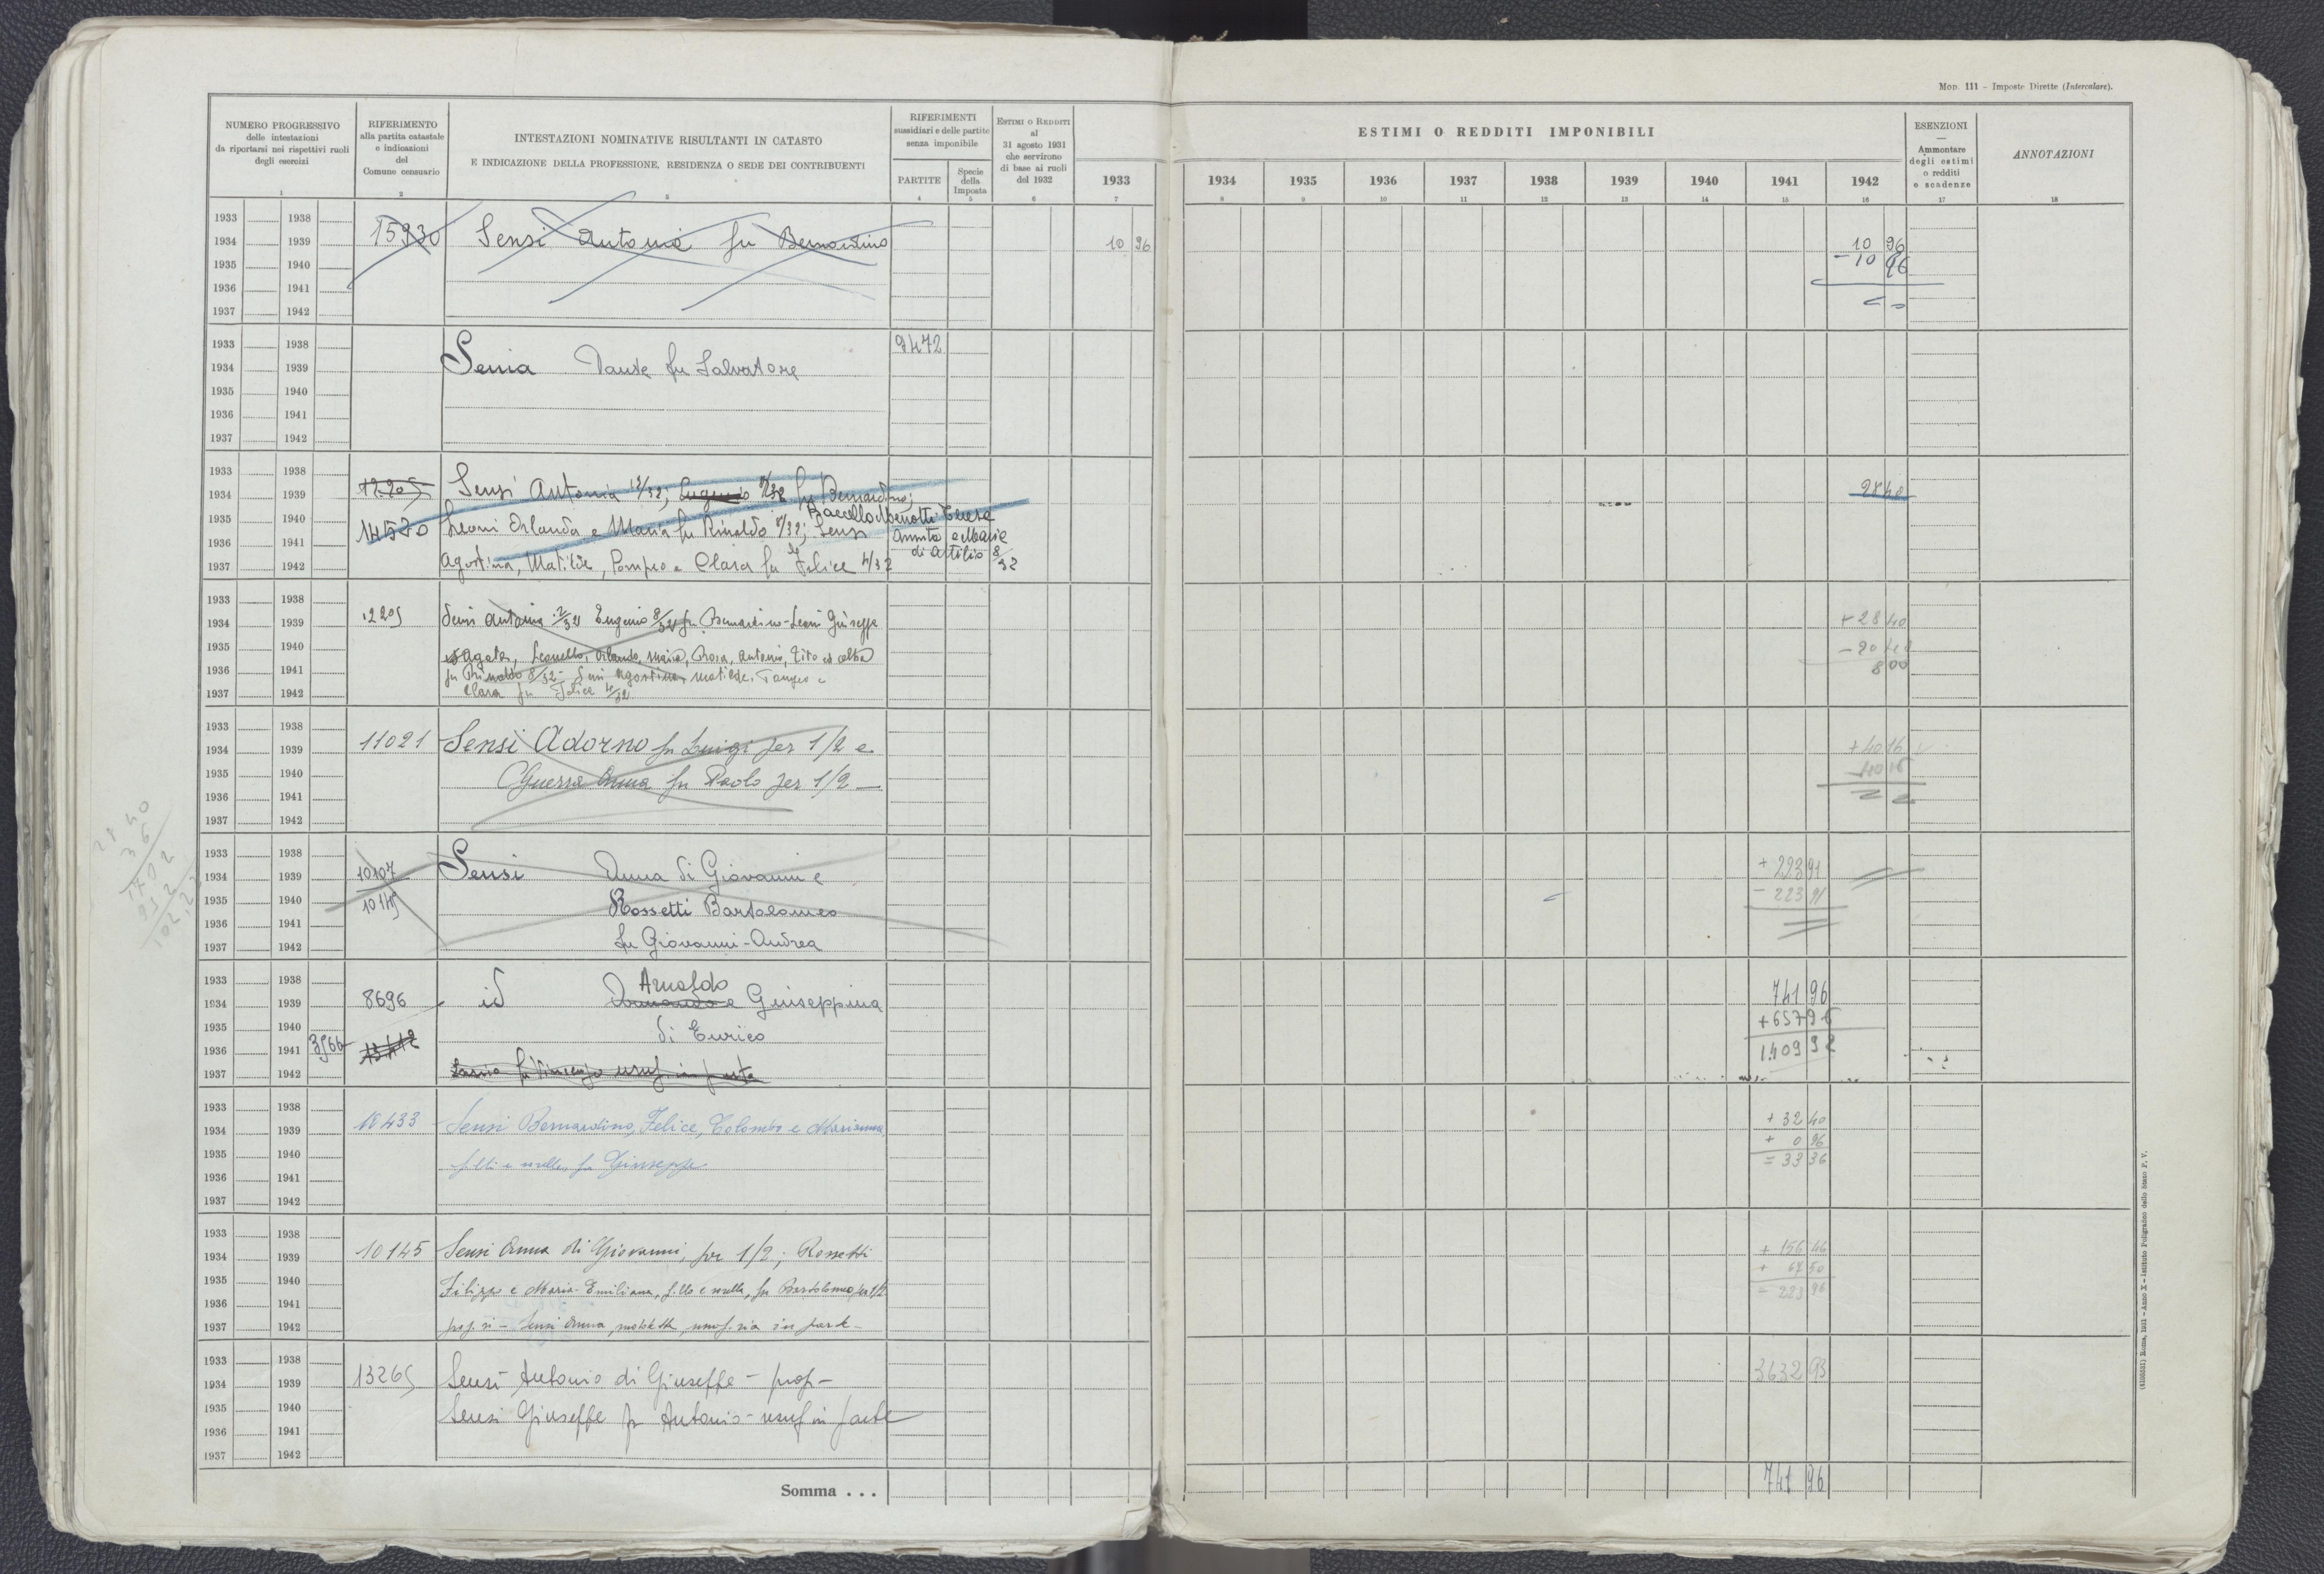 Mod. 111 - Imposte Dirette (Intercalare).
NUMERO PROGRESSIVO
delle intestazioni
da riportarsi nei rispettivi ruoli
degli esercizi
1
RIFERIMENTO
alla partita catastale
e indicazioni
del
Comune censuario
2
INTESTAZIONI NOMINATIVE RISULTANTI IN CATASTO
E INDICAZIONE DELLA PROFESSIONE, RESIDENZA O SEDE DEI CONTRIBUENTI
3
RIFERIMENTI
sussidiari e delle partite
senza imponibile
PARTITE
4
Specie
della
Imposta
5
ESTIMI O REDDITI
al
31 agosto 1931
che servirono
di base ai ruoli
del 1932
6
ESTIMI O REDDITI IMPONIBILI
1933 1934 1935 1936 1937 1938 1939 1940 1941 1942
7 8 9 10 11 12 13 14 15 16
ESENZIONI
—
Ammontare
degli estimi
o redditi
e scadenze
17
ANNOTAZIONI
18
1933 1938
1934 1939 15930 Sensi Antonia fu Bernardino 10 96 10 96
1935 1940 - 10 96
1936 1941
1937 1942
1933 1938 9472
1934 1939 Sensia Dante fu Salvatore
1935 1940
1936 1941
1937 1942
1933 1938
1934 1939 12205 Sensi Antonia 12/32; Eugenio 8/32 fu Bernardino; 28 40
1935 1940 14530 Leoni Orlanda e Maria fu Rinaldo 8/32; Sensi
Baccello Menotti Teresa
1936 1941 Annita e Maria
di Attilio 8/32
1937 1942 Agostina, Matilde, Pompeo e Clara fu Felice 4/32
1933 1938
1934 1939 12205 Sensi Antonia Eugenio 8/32 fu Bernardino - Leoni Giuseppe + 28 40
1935 1940 Agata, Leonello, Orlando, Maria, Rosa, Antonio, Tito ed Alba - 20 40
1936 1941 fu Rinaldo 8/32 - Sensi Agostina, Matilde, Pompeo e 8 00
1937 1942 Clara fu Felice 4/32
1933 1938
1934 1939 11021 Sensi Adorno fu Luigi per 1/2 e + 40 16
1935 1940 Guerra Anna fu Paolo per 1/2 — - 40 16
1936 1941
1937 1942
1933 1938
1934 1939 10107 Sensi Anna di Giovanni e
1935 1940 10145 Rossetti Bartolomeo - 223 91
1936 1941
1937 1942 fu Giovanni-Andrea
1933 1938 Arnaldo
1934 1939 8696 id Armando e Giuseppina 741 96
1935 1940 di Enrico + 657 96
1936 1941 3566 13412 1409 92
1937 1942 fu Vincenzo usuf. in parte
1933 1938
1934 1939 433 Sensi Bernardino, Felice, Colombo e Marianna + 32 40
+ 0 96
1935 1940 f.lli e sorella, fu Giuseppe = 33 36
1936 1941
1937 1942
1933 1938
1934 1939 10145 Sensi Anna di Giovanni, per 1/2; Rossetti + 156 46
1935 1940 Filippo e Maria-Emiliana, f.llo e sorella, fu Bartolomeo per 1/2 + 67 50
1936 1941 = 223 96
1937 1942 prop.ri - Sensi Anna, usuf.ria in parte -
1933 1938
1934 1939 13265 Sensi Antonio di Giuseppe - prop - 3632 93
1935 1940 Sensi Giuseppe fu Antonio - usuf in parte
1936 1941
1937 1942
Somma . . . 741 96
(8105531) Roma, 1931 - Anno X - Istituto Poligrafico dello Stato P. V.